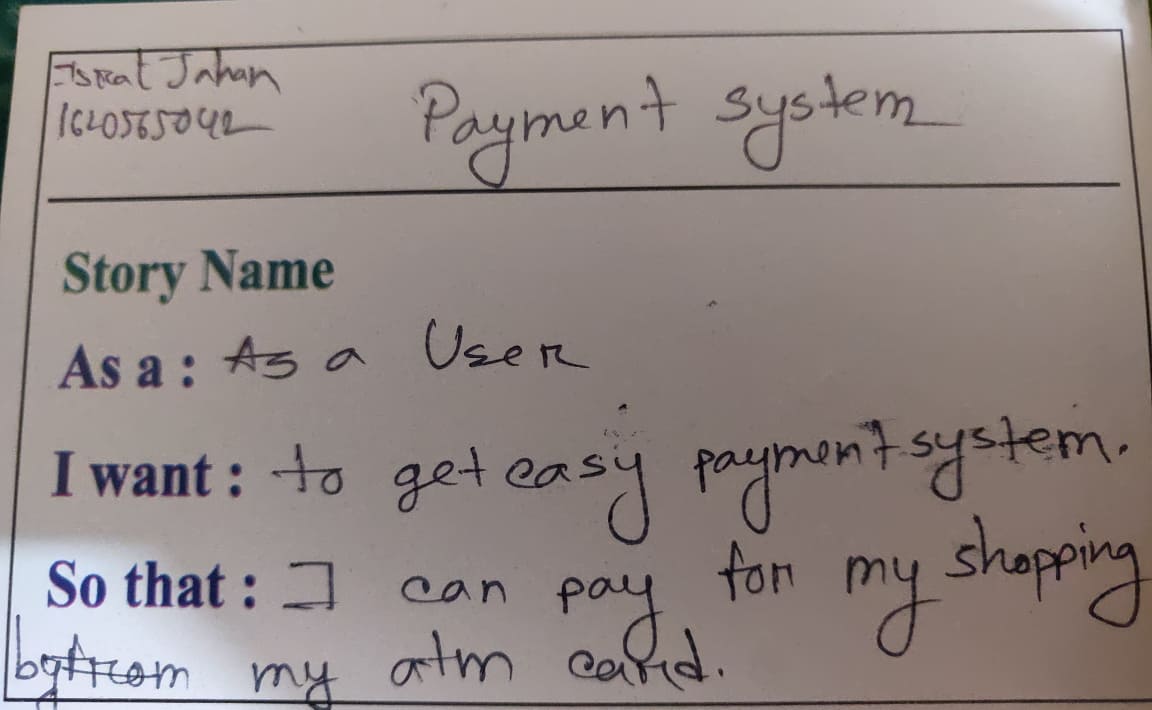 Israt Jahan
1640565042
Payment system
Story Name
As a : As a User
I want : to get easy payment system.
So that : I can pay for my shopping
by from my atm card.